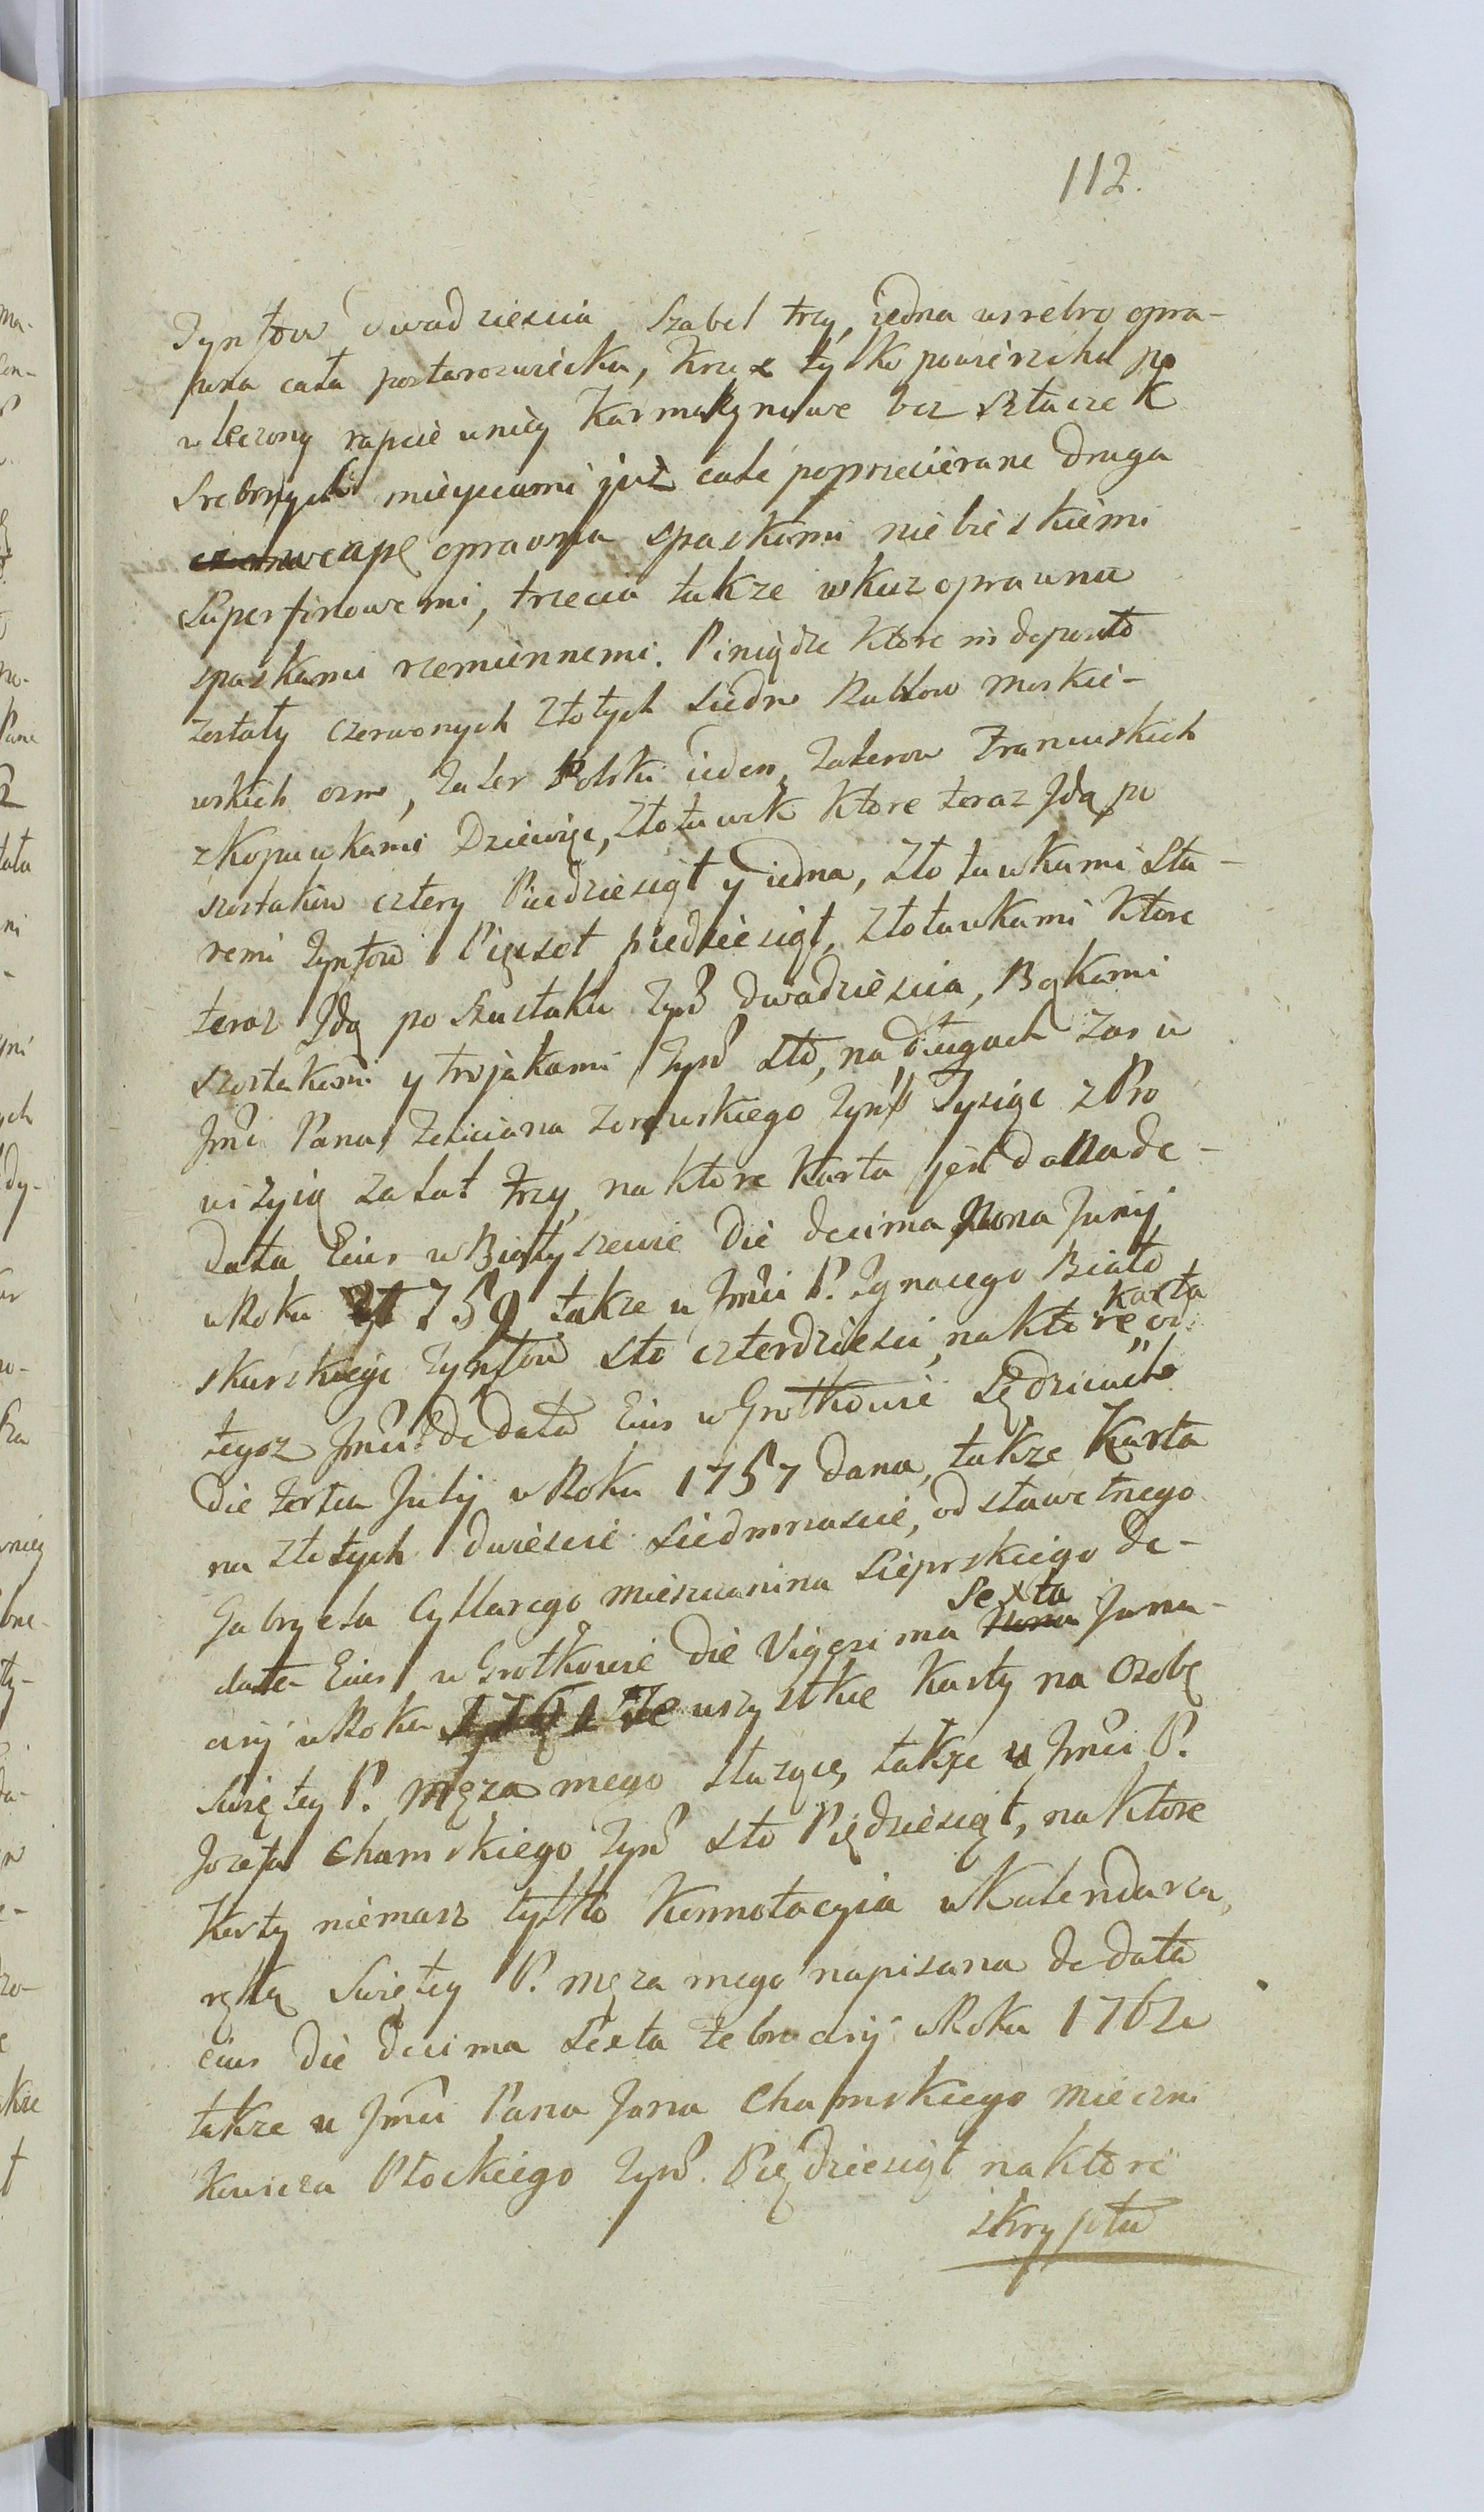 112.
Tynfow dwadziescia Szabel trzy, iedna wsrebro opra-
wna cała postaroswiecku, Krzyz tylko powierzchu po
wleczony rapcie uniey Karmazynowe bez sztuczek
Srebrnych mieyscami już całe poprzecierane druga
wcapę oprawna spaskami niebieskiemi
Superfinowemi, trzecia takze wkaz oprawna
spaskami rzemiennemi. Piniądze Które in deposito
zostały czerwonych Złotych Siedm Rublow moskie-
wskich osm, Taler Polski ieden, Talerow Francuskich
zKopuwkami Dziewięc, Złotuwek Ktore teraz Jdą po
szostakow cztery Piedziesiąt y iedna, Złotuwkami Sta-
remi Tynfow Pięcset piedziesiąt, Złotuwkami Ktore
teraz Jdą po Szustaku Tynf dwadziescia, Bąkami
Szostakami y trojakami Tynf Sto, na długach zas u
Jmci Pana Feliciana Zorawskiego Tynf Tysiąc zPro
wizyią za Lat Trzy, na Ktore Karta jest dana de-
data Eius wBiałyszewie die decima Nona Junij
wRoku 1759 takze u Jmci P. Ignacego Biało
skurskiego Tynfow Sto czterdziesci, na Ktore Karta od
tegoz Jmci P. de data Eius wGrotkowie Sędzicach
die tertia Julij wRoku 1757 dana, takze Karta
na Złotych dwiescie Siedmnascie, od sławetnego
Gabryela Cyllarego mieszczanina Sieprskiego de-
data Eius wGrotkowie die Vigesima Nona Sexta Janu-
arij wRoku 1761 Te wszystkie Karty na Osobę
Swiętey P. Męza mego słuzące, takze u Jmci P.
Jozefa Chamskiego Tynf Sto Piędziesiąt, na Ktore
Karty niemasz tylko Konnotacyia wKalendarzu,
ręką Swiętey P. męza mego napisana de data
eius die decima Sexta Februarij wRoku 1762
takze u Jmci Pana Jana Chamskiego mieczni
Kowicza Płockiego Tynf. Piędziesiąt na Ktore
skryptu